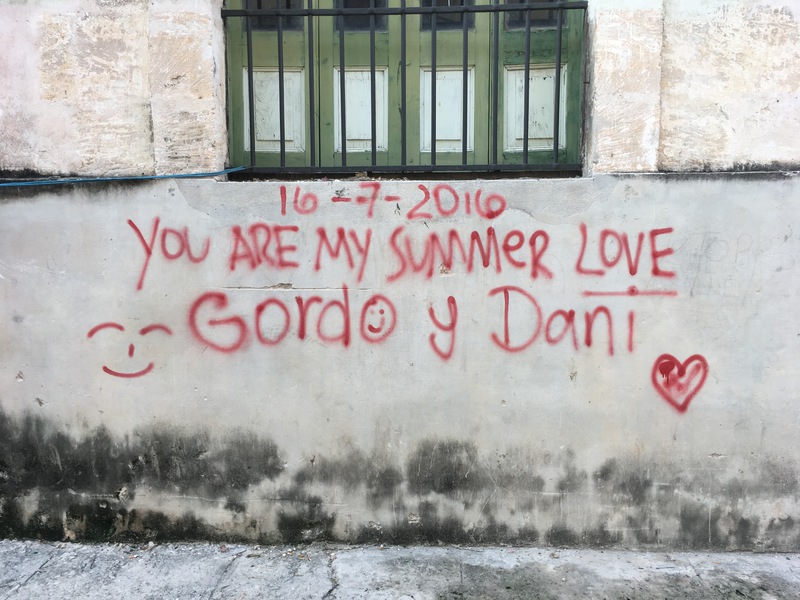 16-7-2016
YOU ARE MY SUMMER LOVE
Gordo y Dani